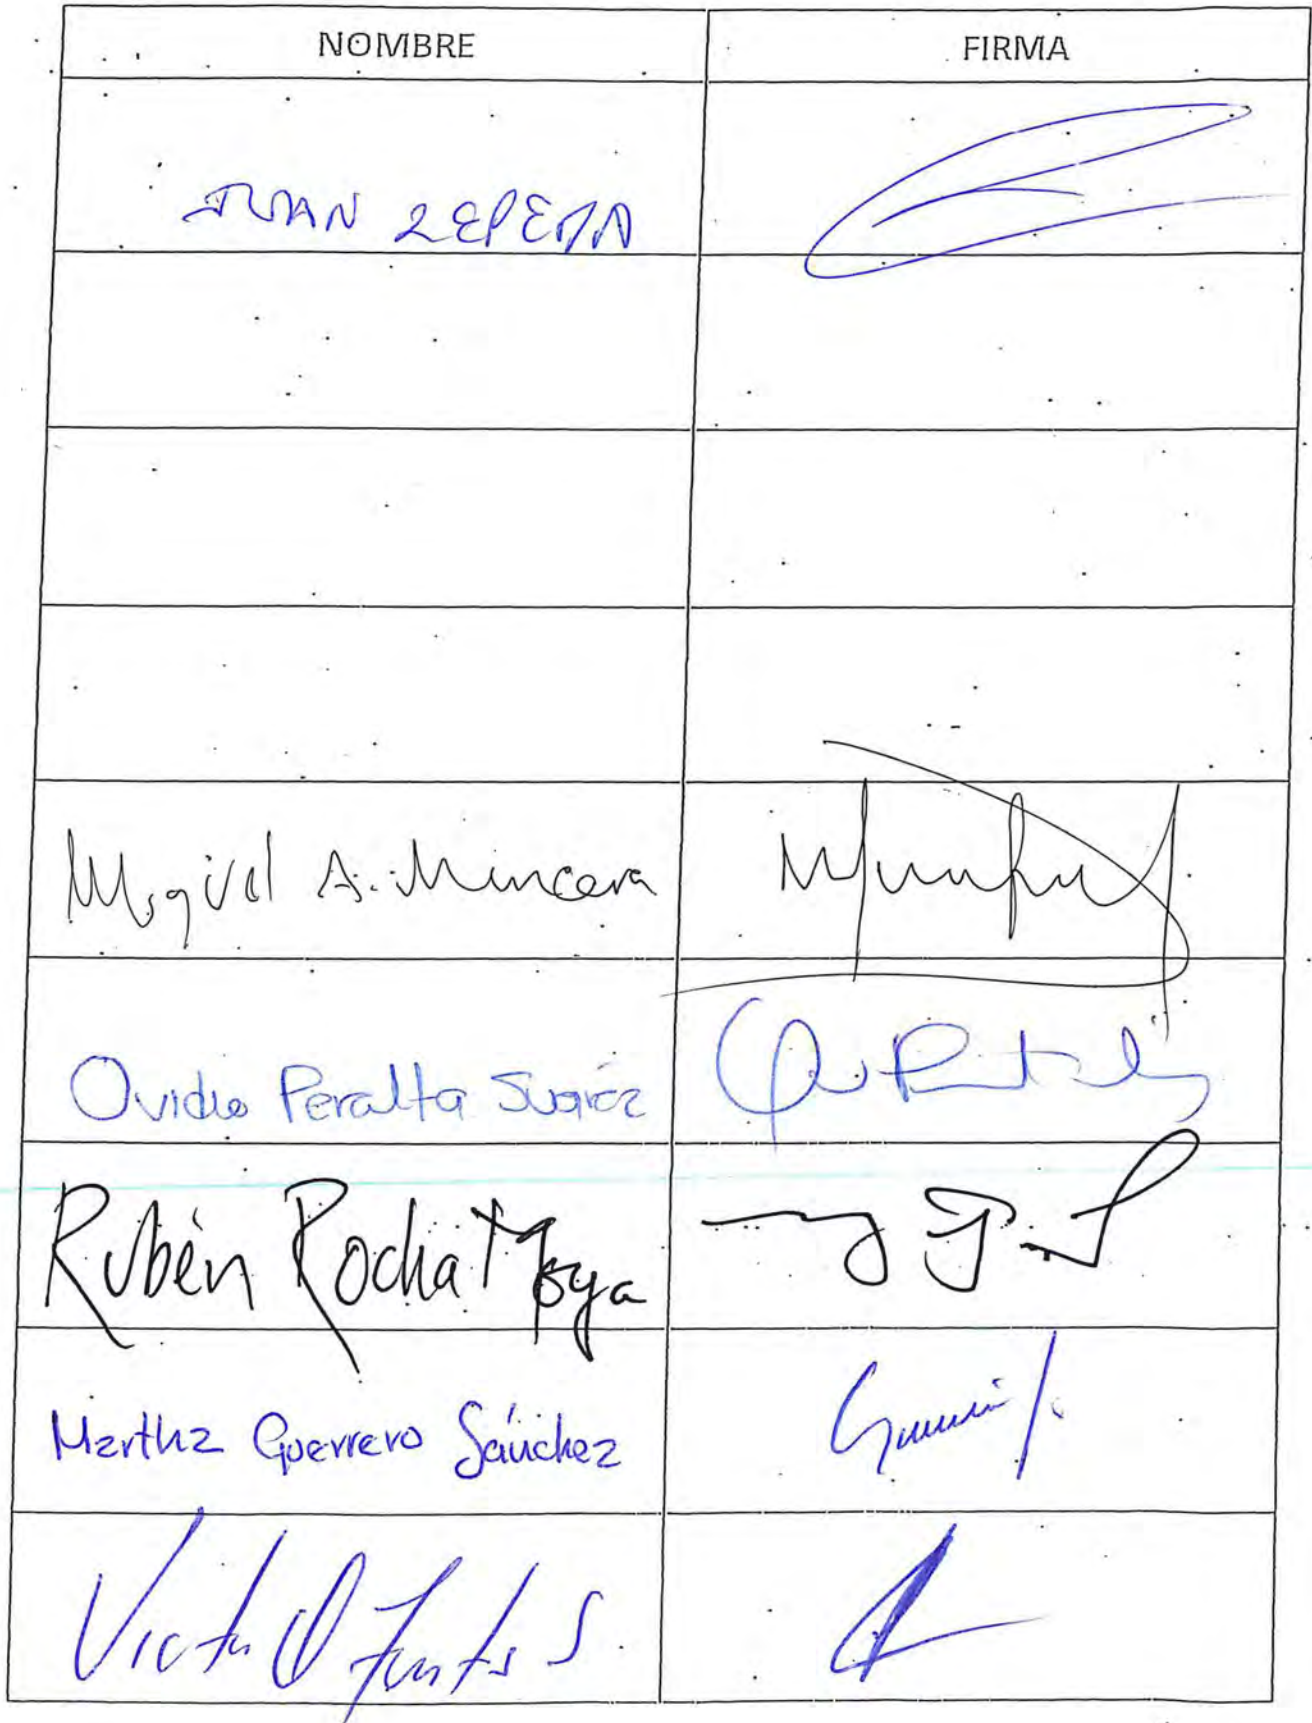 NOMBRE FIRMA
JUAN ZEPEDA
Miguel A. Mancera
Ovidio Peralta Suárez
Rubén Rocha Moya
Martha Guerrero Sánchez
Victor O Fuentes S.